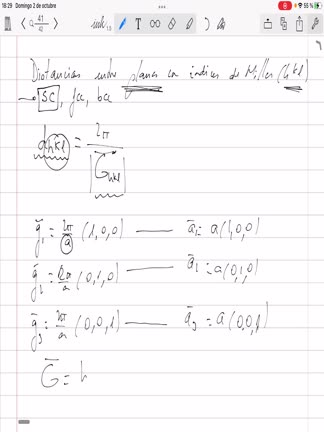 18:29 Domingo 2 de octubre 55 %
41
42
Distancias entre planos con índices de Miller (hkl)
→ SC, fcc, bcc
d_hkl = 2π / |G_hkl|
ḡ₁ = 2π/a (1,0,0) — ā₁ = a(1,0,0)
ḡ₂ = 2π/a (0,1,0) — ā₂ = a(0,1,0)
ḡ₃ = 2π/a (0,0,1) — ā₃ = a(0,0,1)
Ḡ = h